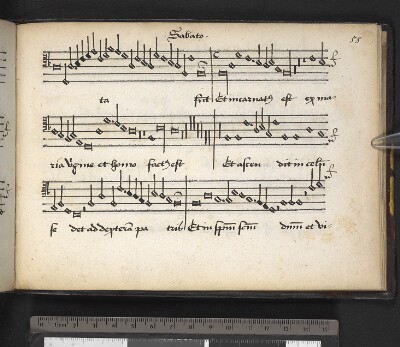 Sabato.
58
ta fct Et incarnatꝰ est ex ma
ria v̓gine et homo factꝰ est Et ascen dit in celū
se det ad dexterā pa tris Et in spm̄ scm̄ dnm̄ et vi